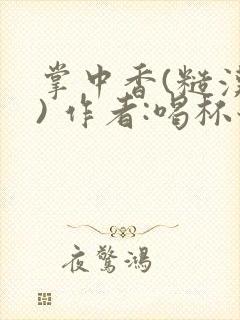 掌中香(糙汉
) 作者:喝杯
夜惊鸿